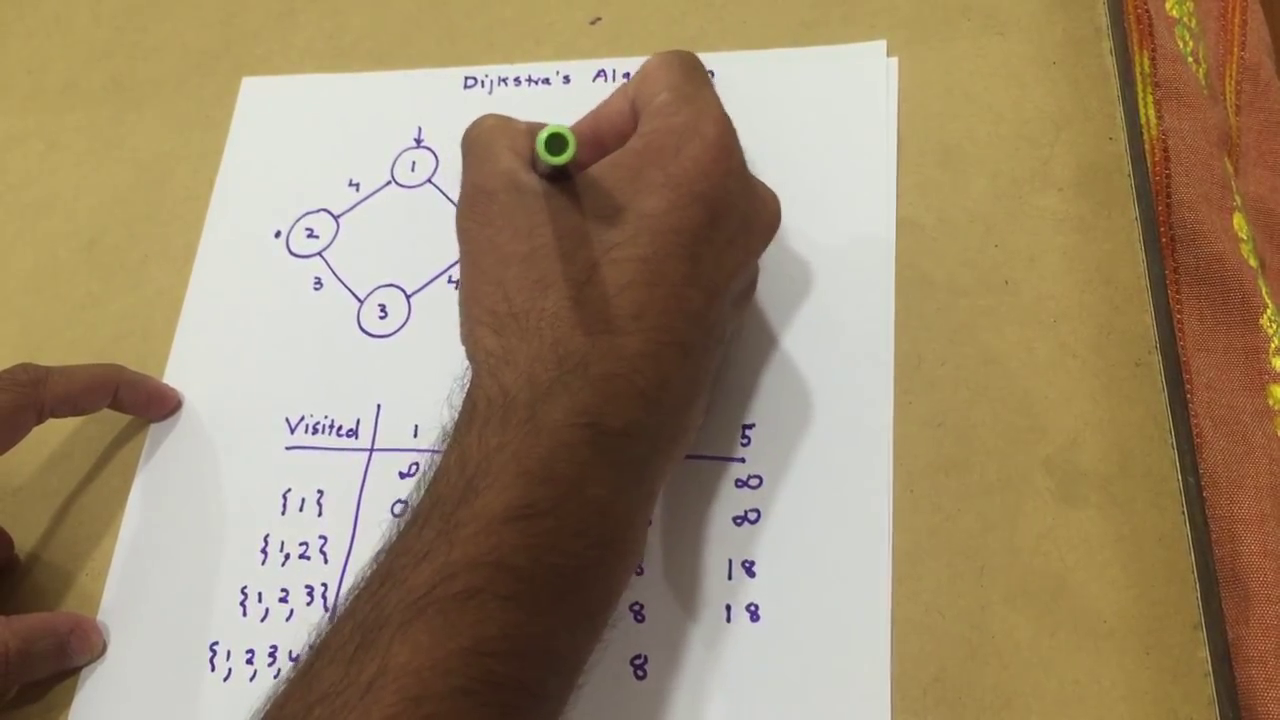 Dijkstra's
1
4
2
3
4
3
Visited 1 5
∞ ∞
{1} 0 ∞
{1,2} 18
{1,2,3} 8 18
{1,2,3,4 8